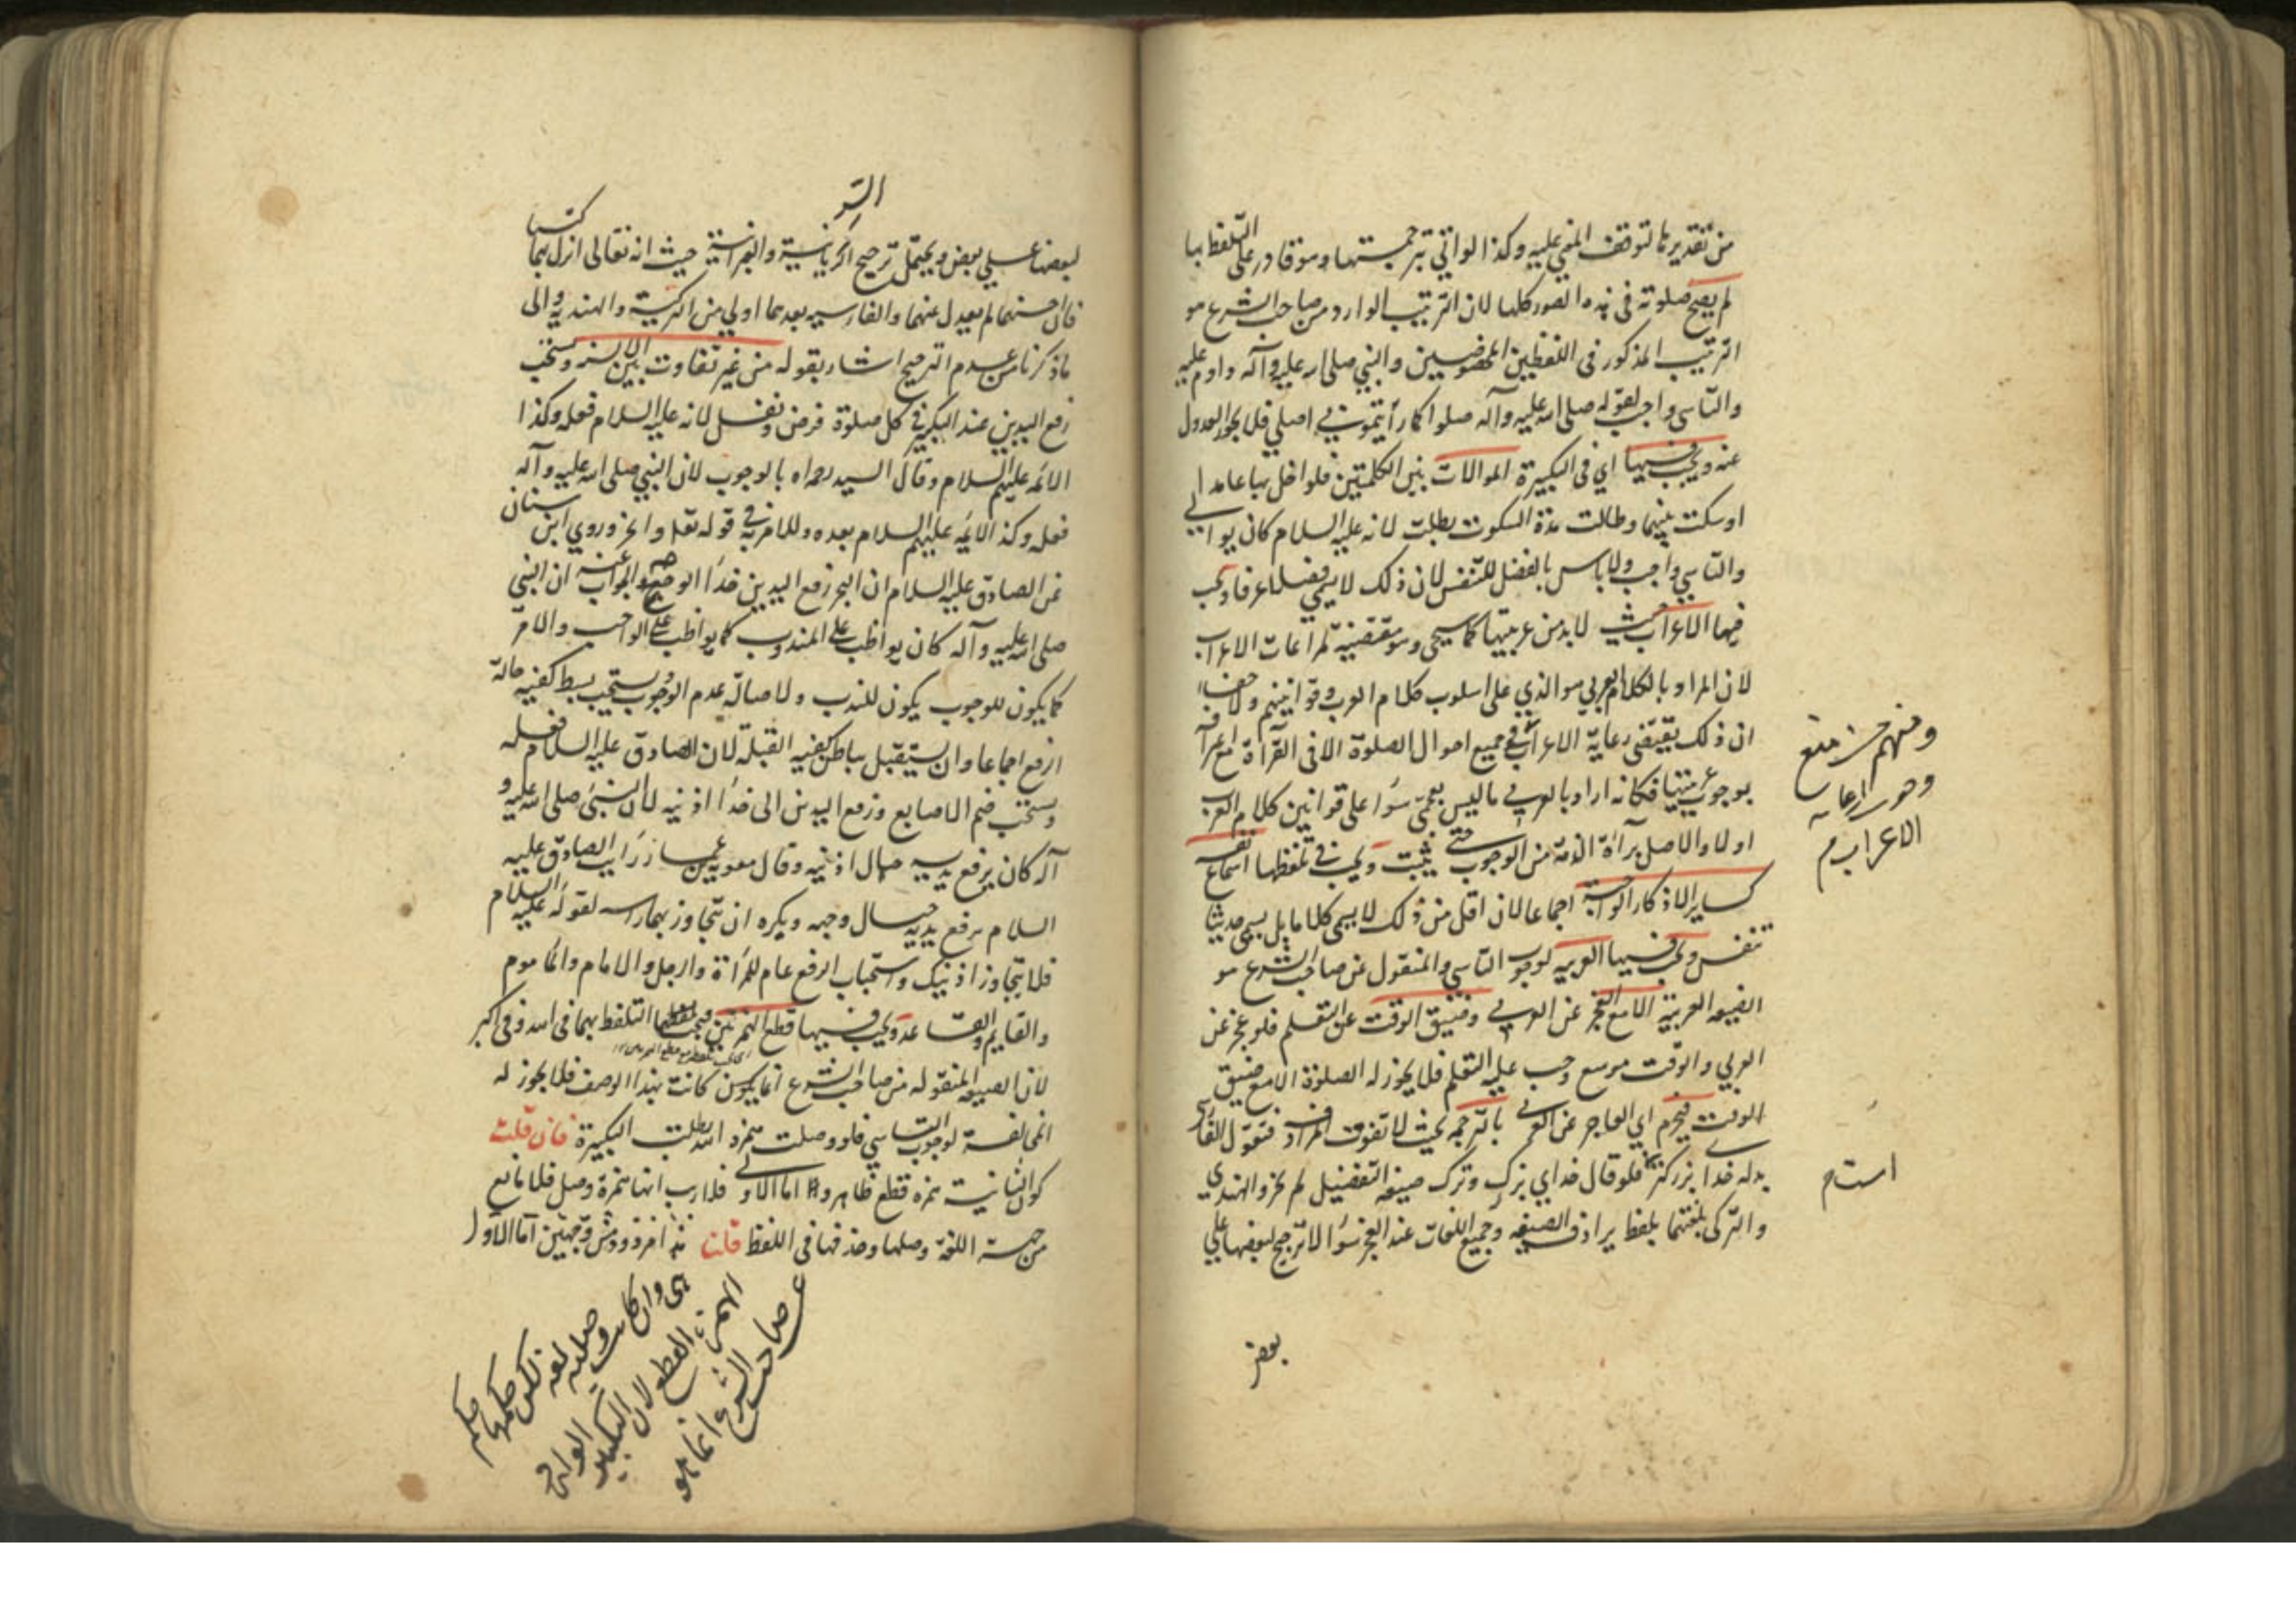 من تقديرها لتوقف المعنى عليه وكذا لو اتى بترجمتها وهو قادر على التلفظ بها
لم يصح صلوته فى هذه الصور كلها لان الترتيب الوارد من صاحب الشرع هو
الترتيب المذكور فى اللفظين المخصوصين والنبي صلى الله عليه وآله داوم عليه
والتاسي واجب لقوله صلى الله عليه وآله صلوا كما رأيتموني اصلي فلا يجوز العدول
عنه ويجب فيها اي فى التكبيرة الموالات بين الكلمتين فلو اخل بها عامدا
او سكت بينهما وطالت مدة السكوت بطلت لانه عليه السلام كان يوالي
والتاسي واجب ولا باس بالفصل للتنفس لان ذلك لا يسمى فصلا عرفا ويجب
فيها الاعراب حيث لابد من عربيتها كما سيجي وهو مقتضية لمراعات الاعراب
لان المراد بالكلام العربي هو الذي على اسلوب كلام العرب وقوانينهم ولا خفاء
ان ذلك يقتضى رعاية الاعراب في جميع احوال الصلوة الا فى القرآءة مع اعترافه
بوجوب عربيتها فكانه اراد بالعربي ما ليس بعجمي سوآء على قوانين كلام العرب
اولا والاصل برآءة الذمة من الوجوب حتى يثبت ويجب في تلفظها اسماع نفسه
كساير الاذكار الواجبة اجماعا لان اقل من ذلك لا يسمى كلاما بل يسمى حديث
نفس ويجب فيها العربيه لوجوب التاسي والمنقول عن صاحب الشرع هو
الصيغه العربية الا مع العجز عن العربي وضيق الوقت عن التعلم فلو عجز عن
العربي والوقت موسع وجب عليه التعلم فلا يجوز له الصلوة الا مع ضيق
الوقت فيحرم اي العاجز عن العربي بالترجمه بحيث لا تفوت المرادف فيقول الفارسي
بدله خدا بزركتر فلو قال خداي بزرك وترك صيغه التفضيل لم يجز والهندي
والتركي بلغتهما بلفظ يرادف الصيغه وجميع اللغات عند العجز سوآء لا ترجيح لبعضها على
بعض
ومنهم من منع
وجوب رعايه
الاعراب م
است م
السر
لبعضها على بعض ويحتمل ترجيح السريانية والعبرانية حيث انه تعالى انزل بهما كتبا
فان احسنهما لم يعدل عنهما والفارسيه بعدهما اولي من التركية والهنديه والى
ما ذكرنا من عدم الترجيح اشار بقوله من غير تفاوت بين الالسنه ويستحب
رفع اليدين عند التكبير في كل صلوة فرض ونفل لانه عليه السلام فعله وكذا
الائمه عليهم السلام وقال السيد رحمه الله بالوجوب لان النبي صلى الله عليه وآله
فعله وكذا الائمه عليهم السلام بعده وللامر به في قوله تعالى وانحر وروي ابن سنان
عن الصادق عليه السلام ان النحر رفع اليدين حذاء الوجه والجواب عنه ان النبي
صلى الله عليه وآله كان يواظب على المندوب كما يواظب على الواجب والامر
كما يكون للوجوب يكون للندب ولاصالة عدم الوجوب ويستحب بسط كفيه حالة
الرفع اجماعا وان يستقبل بباطن كفيه القبلة لان الصادق عليه السلام فعله
ويستحب ضم الاصابع ورفع اليدين الى حذاء اذنيه لان النبي صلى الله عليه و
آله كان يرفع يديه حيال اذنيه وقال معوية بن عمار رايت الصادق عليه
السلام يرفع يديه حيال وجهه ويكره ان يتجاوز بهما راسه لقوله عليه السلام
فلا يتجاوز اذنيك واستحباب الرفع عام للمرأة والرجل والامام والماموم
والقايم والقاعد ويجب فيها قطع الهمزتين فيجب قطعهما التلفظ بهما فى الله وفى اكبر
لان الصيغه المنقوله من صاحب الشرع انما يكون كانت بهذا الوصف فلا يجوز له
المخالفة لوجوب التاسي فلو وصلت همزه الله بطلت التكبيرة فان قلت
كون الثانية همزه قطع ظاهر واما الاولى فلا ريب انها همزة وصل فلا مانع
من جهة اللغة وصلها وحذفها فى اللفظ قلت هذا مردود من وجهين اما الاول
هى وان كانت
وصليه لغه
لكن حكمها حكم
الهمزة القطع لان التكبير الوارد
عن صاحب الشرع انما هو